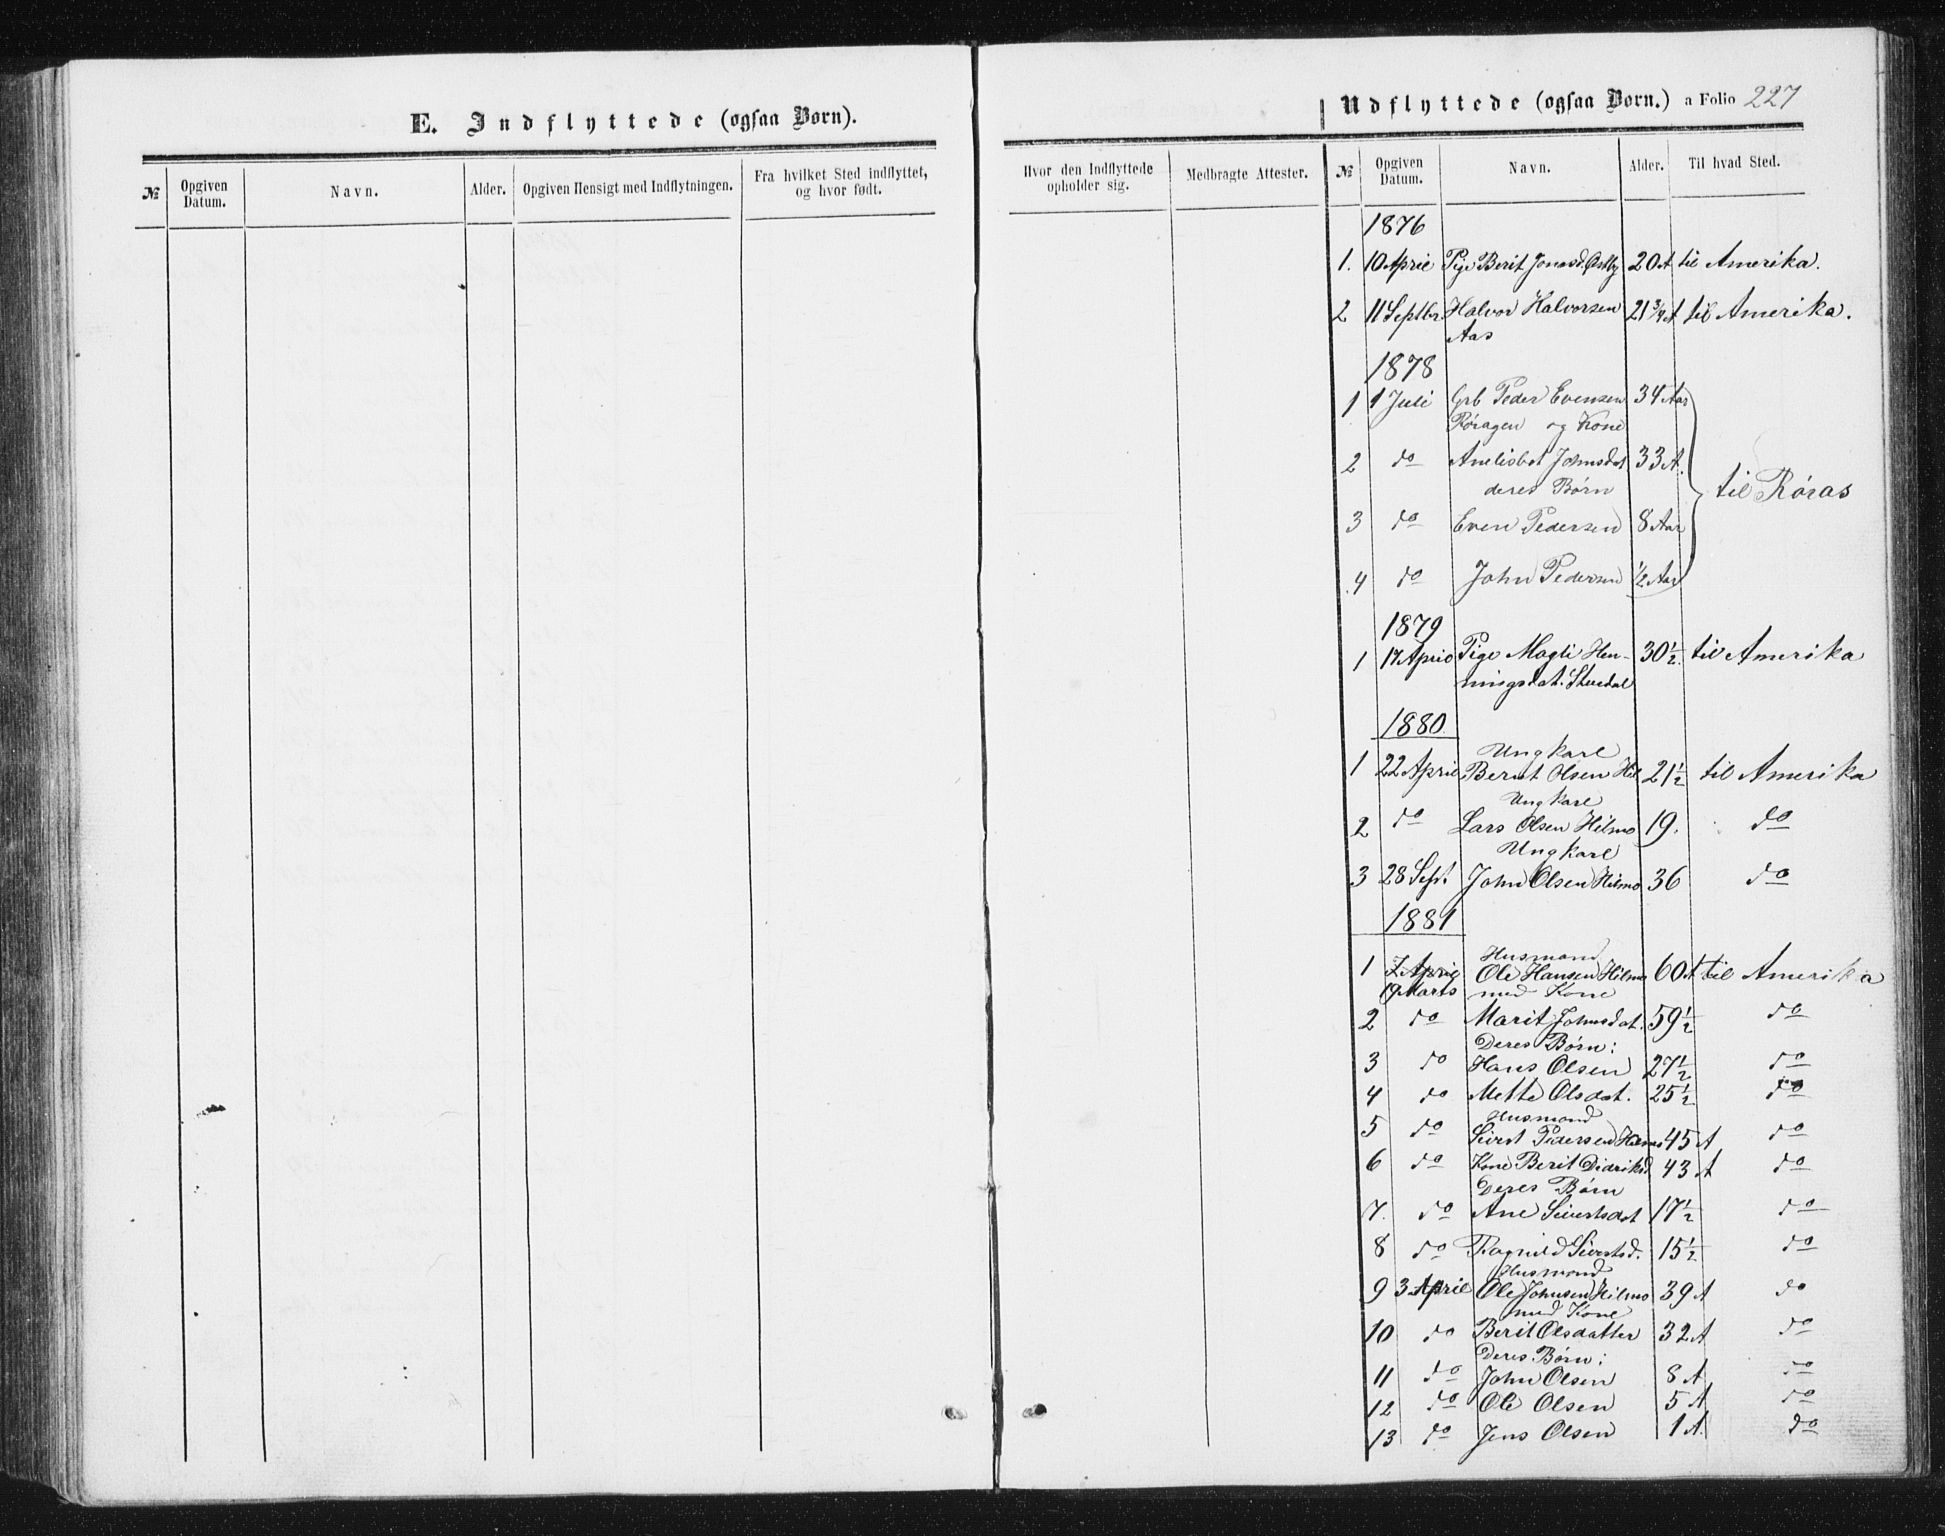 E. Indflyttede (ogsaa Børn).
№ Opgiven Datum. Navn. Alder. Opgiven Hensigt med Indflytningen. Fra hvilket Sted indflyttet, og hvor født.
Hvor den Indflyttede opholder sig. Medbragte Attester.
Udflyttede (ogsaa Børn.) a Folio 227
№ Opgiven Datum. Navn. Alder. Til hvad Sted.
1876
1. 10 April Pige Berit Jonasd. Østby 20 A til Amerika.
2 11 Septbr. Halvor Halvorsen 21 3/4 A til Amerika.
Aas
1878
1 1 Juli Grb Peder Evensen 34 Aar
Røragen og Kone
2 do Anelisbet Johnsdat. 33 A.
deres Børn
til Røraas
3 do Even Pedersen 8 Aar
4 do John Pedersen 1/2 Aar
1879
1 17 April Pige Magli Hen- 30 1/2. til Amerika
ningsdat. Stuedal
1880.
Ungkarl
1 22 April Bernt Olsen Hil 21 1/2 til Amerika
Ungkarl
2 do Lars Olsen Hilmo 19. do
Ungkarl
3 28 Sept. John Olsen Hilmo 36 do
1881
Husmand
1 7 April Ole Hansen Hilmo 60 A til Amerika
19 Marts med Kone
2 do Marit Johnsdat. 59 1/2 do
Deres Børn:
3 do Hans Olsen 27 1/2 do
4 do Mette Olsdat. 25 1/2 do
Husmand
5 do Sivert Pedersen Hilmo 45 A do
6 do Kone Berit Didriksd. 43 A do
Deres Børn
7. do Ane Sivertsdat 17 1/2 do
8 do Ragnild Sivertsd. 15 1/2 do
Husmand
9 3 April Ole Johnsen Hilmo 39 A do
med Kone
10 do Berit Olsdatter 32 A do
Deres Børn:
11 do John Olsen 8 A do
12 do Ole Olsen 5 A do
13 do Jens Olsen 1 A. do